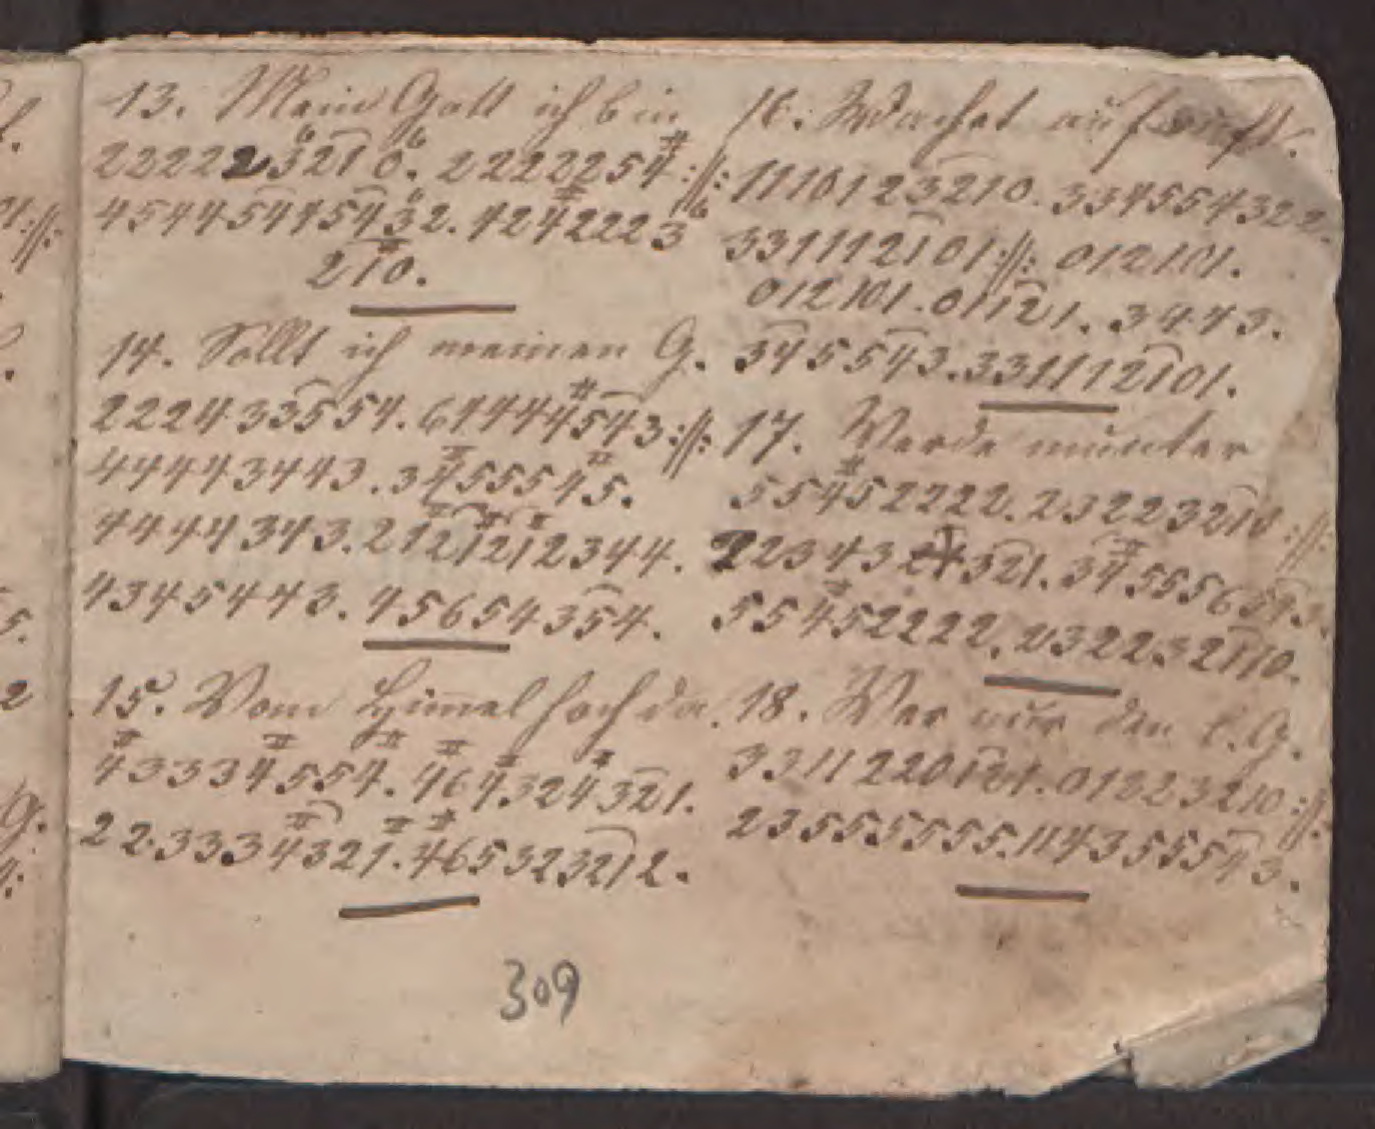 13. Mein Gott ich bin
222223210. 2222254 :||:
454454454532. 4242223
210.
14. Sollt ich meinen G.
222433554. 64444543 :||:
44443443. 34555545.
4444343. 2121212344.
4345443. 45654354.
15. Vom Himmel hoch da.
43334554. 464324321.
22.3334321. 465323212.
16. Wachet auf ruft.
11101233210. 3345554322.
331112101 :||: 012101.
012101. 01121. 3443.
345543. 331112101.
17. Werde munter
55452222. 232232110 :||:
321. 345556543.
55452222. 232232110.
18. Wer nur den l. G.
3211220101. 01223210 :||:
235555555. 1143555543.
309